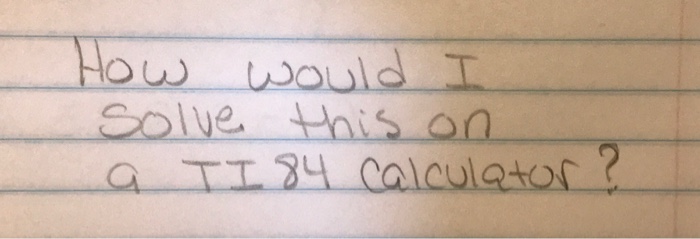 How would I
solve this on
a TI 84 calculator?